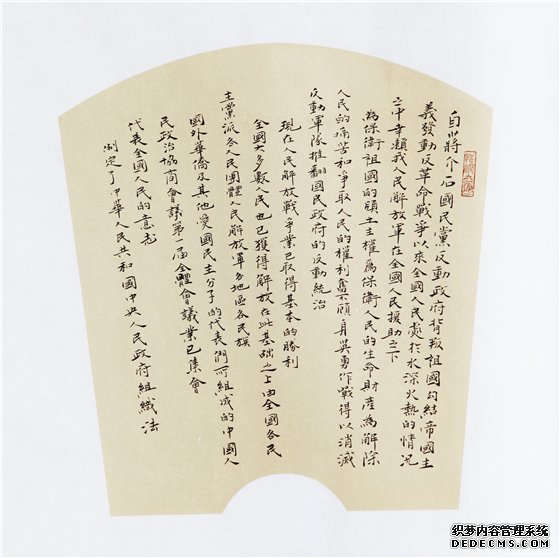 自蔣介石國民黨反動政府背叛祖國勾結帝國主
義發動反革命戰爭以來全國人民處於水深火熱的情況
之中幸賴我人民解放軍在全國人民援助之下
為保衛祖國的領土主權為保衛人民的生命財產為解除
人民的痛苦和爭取人民的權利奮不顧身英勇作戰得以消滅
反動軍隊推翻國民政府的反動統治
現在人民解放戰爭業已取得基本的勝利
全國大多數人民也已獲得解放在此基礎之上由全國各民
主黨派各人民團體人民解放軍各地區各民族
國外華僑及其他愛國民主分子的代表們所組成的中國人
民政治協商會議第一屆全體會議業已集會
代表全國人民的意志
制定了中華人民共和國中央人民政府組織法
织梦内容管理系统
DEDECMS.COM